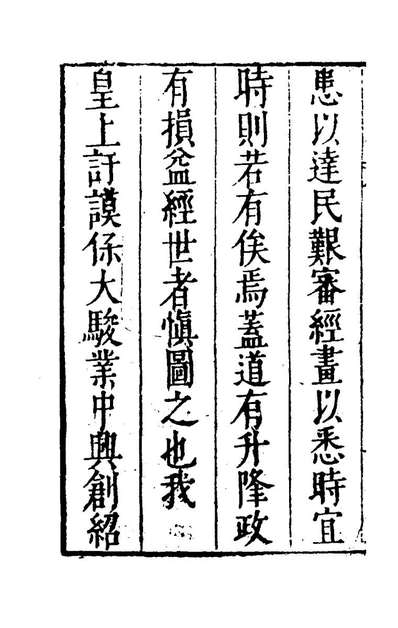 患以達民艱審經畫以悉時宜
時則若有俟焉蓋道有升隆政
有損益經世者慎圖之也我
皇上訏謨係大駿業中興創紹